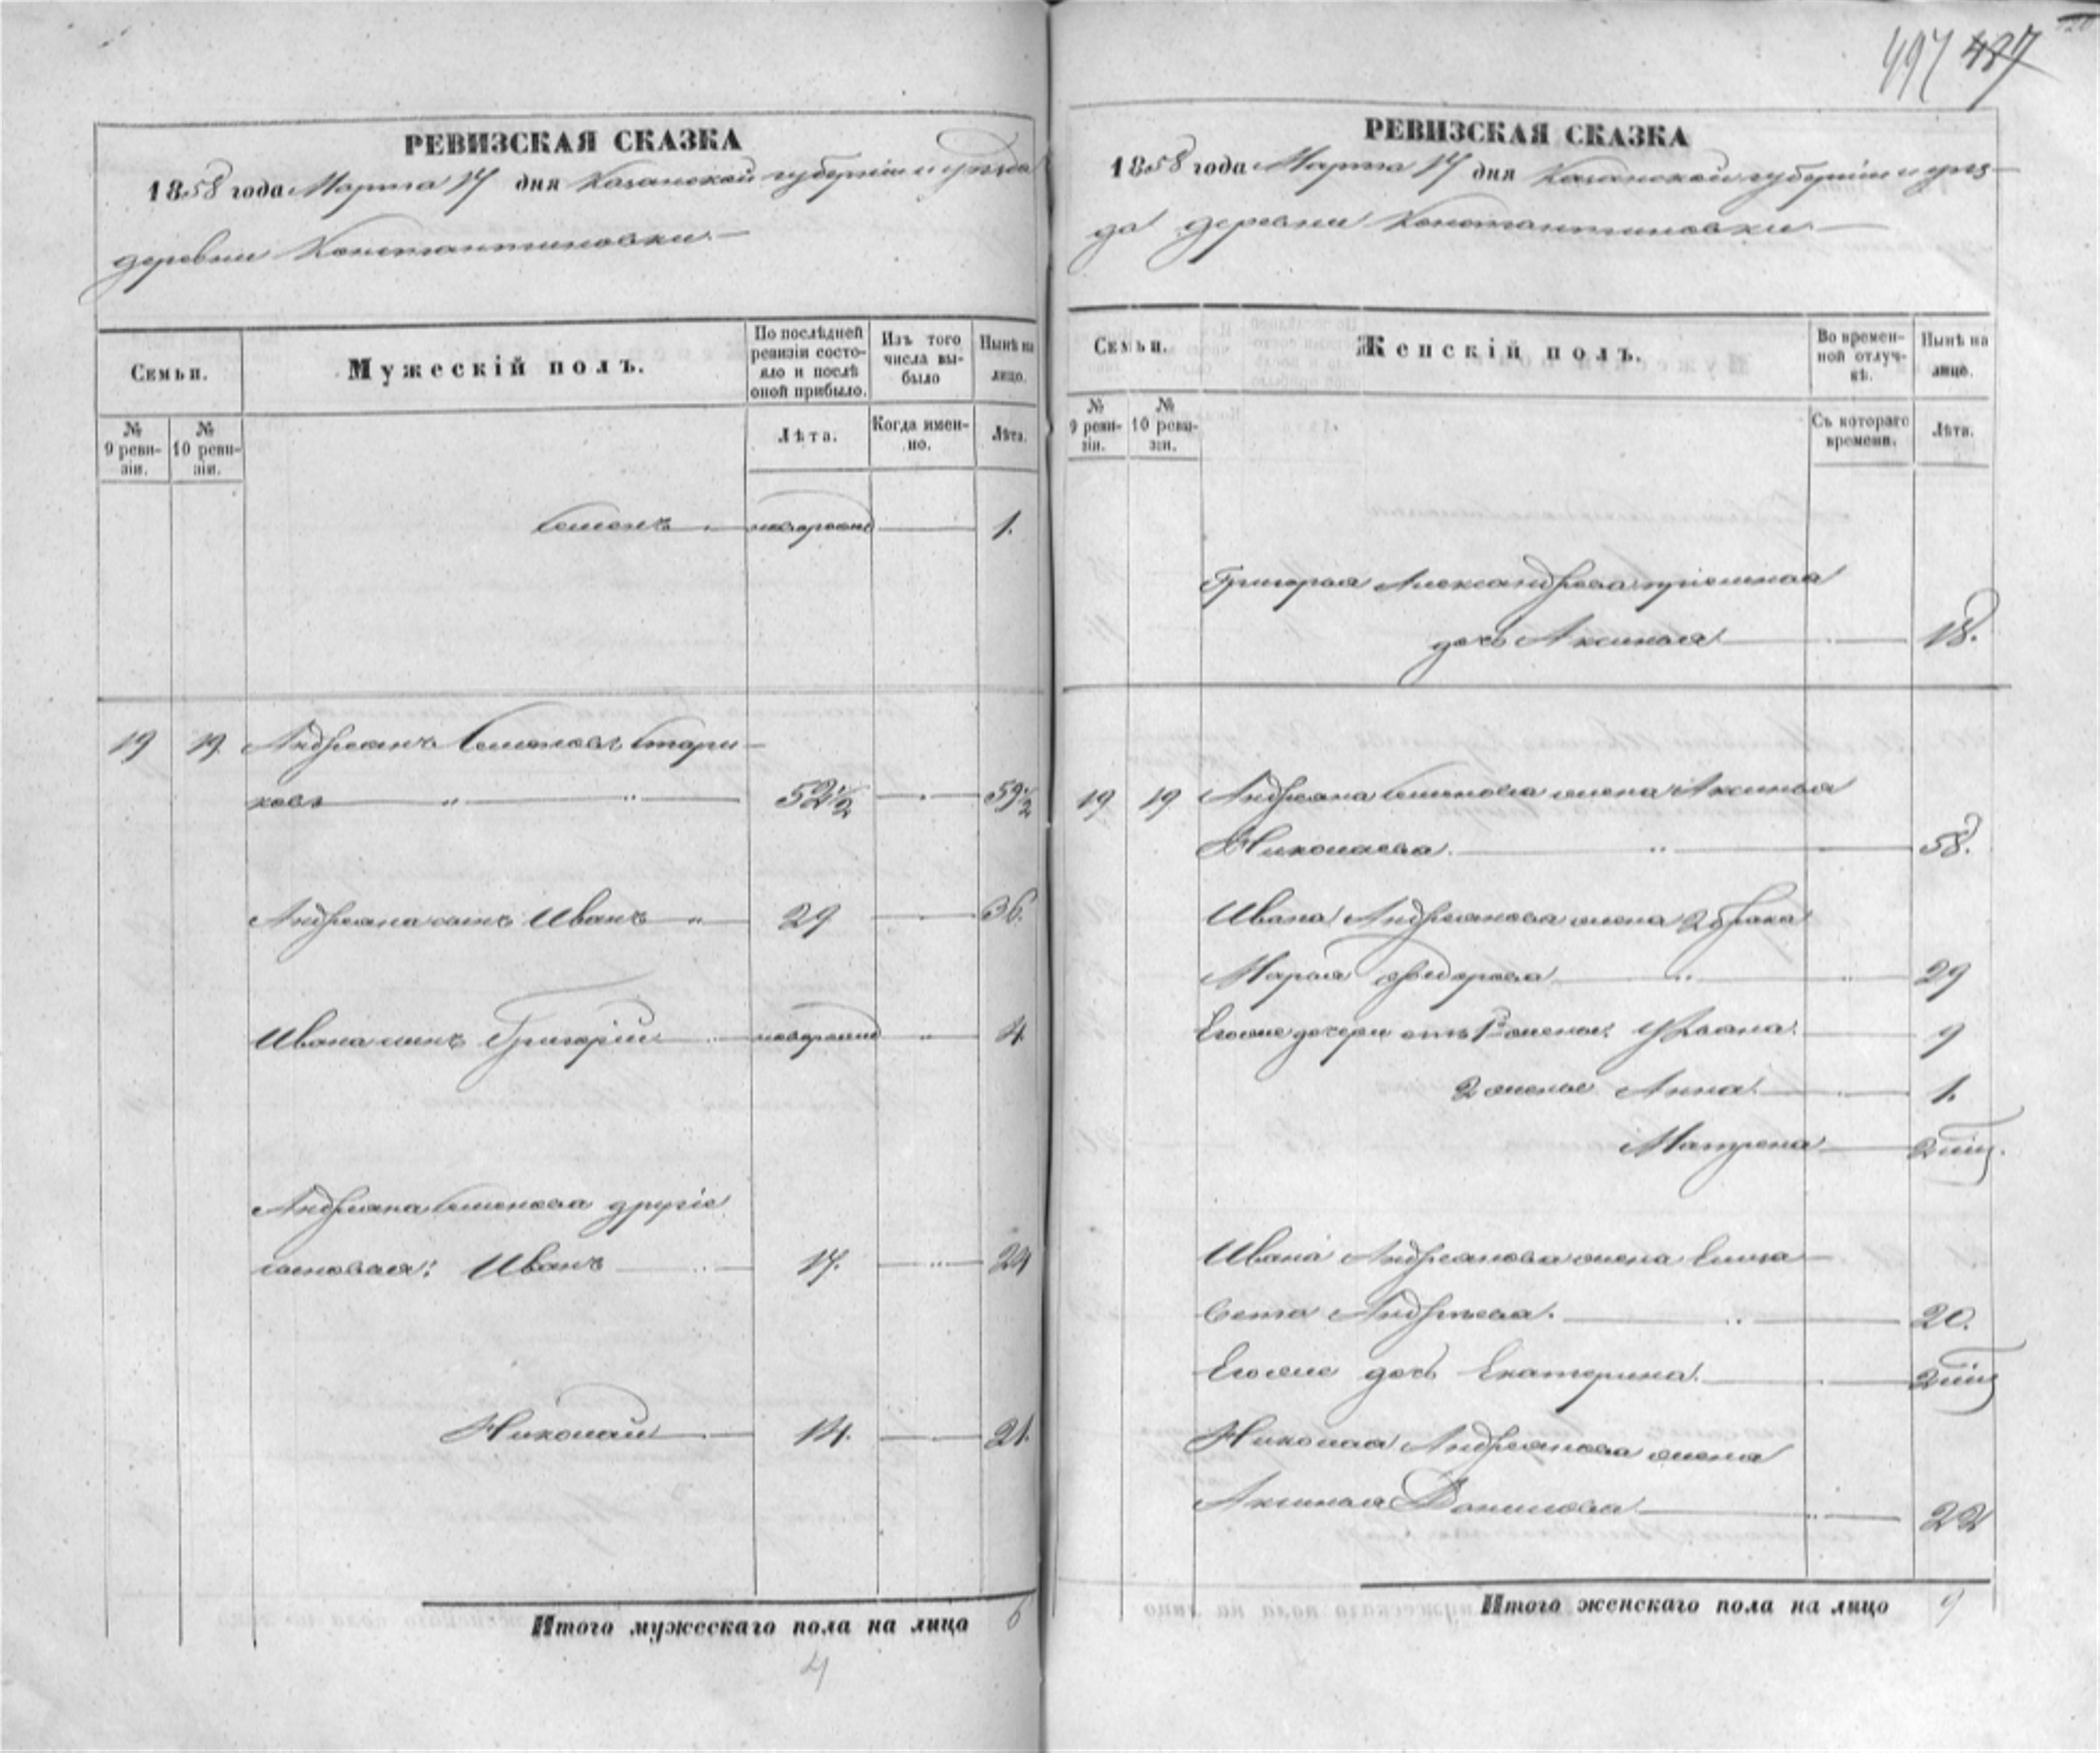 497 487
РЕВИЗСКАЯ СКАЗКА
1858 года Марта 17 дня Казанской губерніи и уѣзда
деревни Константиновки.
Семьи.
Мужескій полъ.
По послѣдней ревизіи состояло и послѣ оной прибыло.
Изъ того числа выбыло
Нынѣ на лицо.
№ 9 ревизіи.
№ 10 ревизіи.
Лѣта.
Когда именно.
Лѣта.
Семенъ новорожд 1.
19 19. Андреянъ Семеновъ Стари-
ковъ 52½ 59½
Андреяна сынъ Иванъ 29 36.
Ивана сынъ Григорій новорожд 4
Андреяна Семенова другіе
сыновья: Иванъ 17. 24
Николай 14. 21.
Итого мужескаго пола на лицо 6
4
РЕВИЗСКАЯ СКАЗКА
1858 года Марта 17 дня Казанской губерніи и уѣз-
да деревни Константиновки.
Семьи.
Женскій полъ.
Во временной отлучкѣ.
Нынѣ на лицо.
№ 9 ревизіи.
№ 10 ревизіи.
Съ котораго времени.
Лѣта.
Григорья Александрова пріемная
дочь Аксинья 18.
19 19 Андреяна Семенова жена Аксинья
Николаева. 58.
Ивана Андреянова жена 2 брака
Марья Федорова 29
Его же дочери отъ 1й жены: Ульяна. 9
2 жены Анна. 1.
Матрена 2 мѣц.
Ивана Андреянова жена Елиза-
вета Андреева. 20.
Его же дочь Екатерина. 2 мѣц
Николая Андреянова жена
Аксинья Данилова 22
Итого женскаго пола на лицо 9